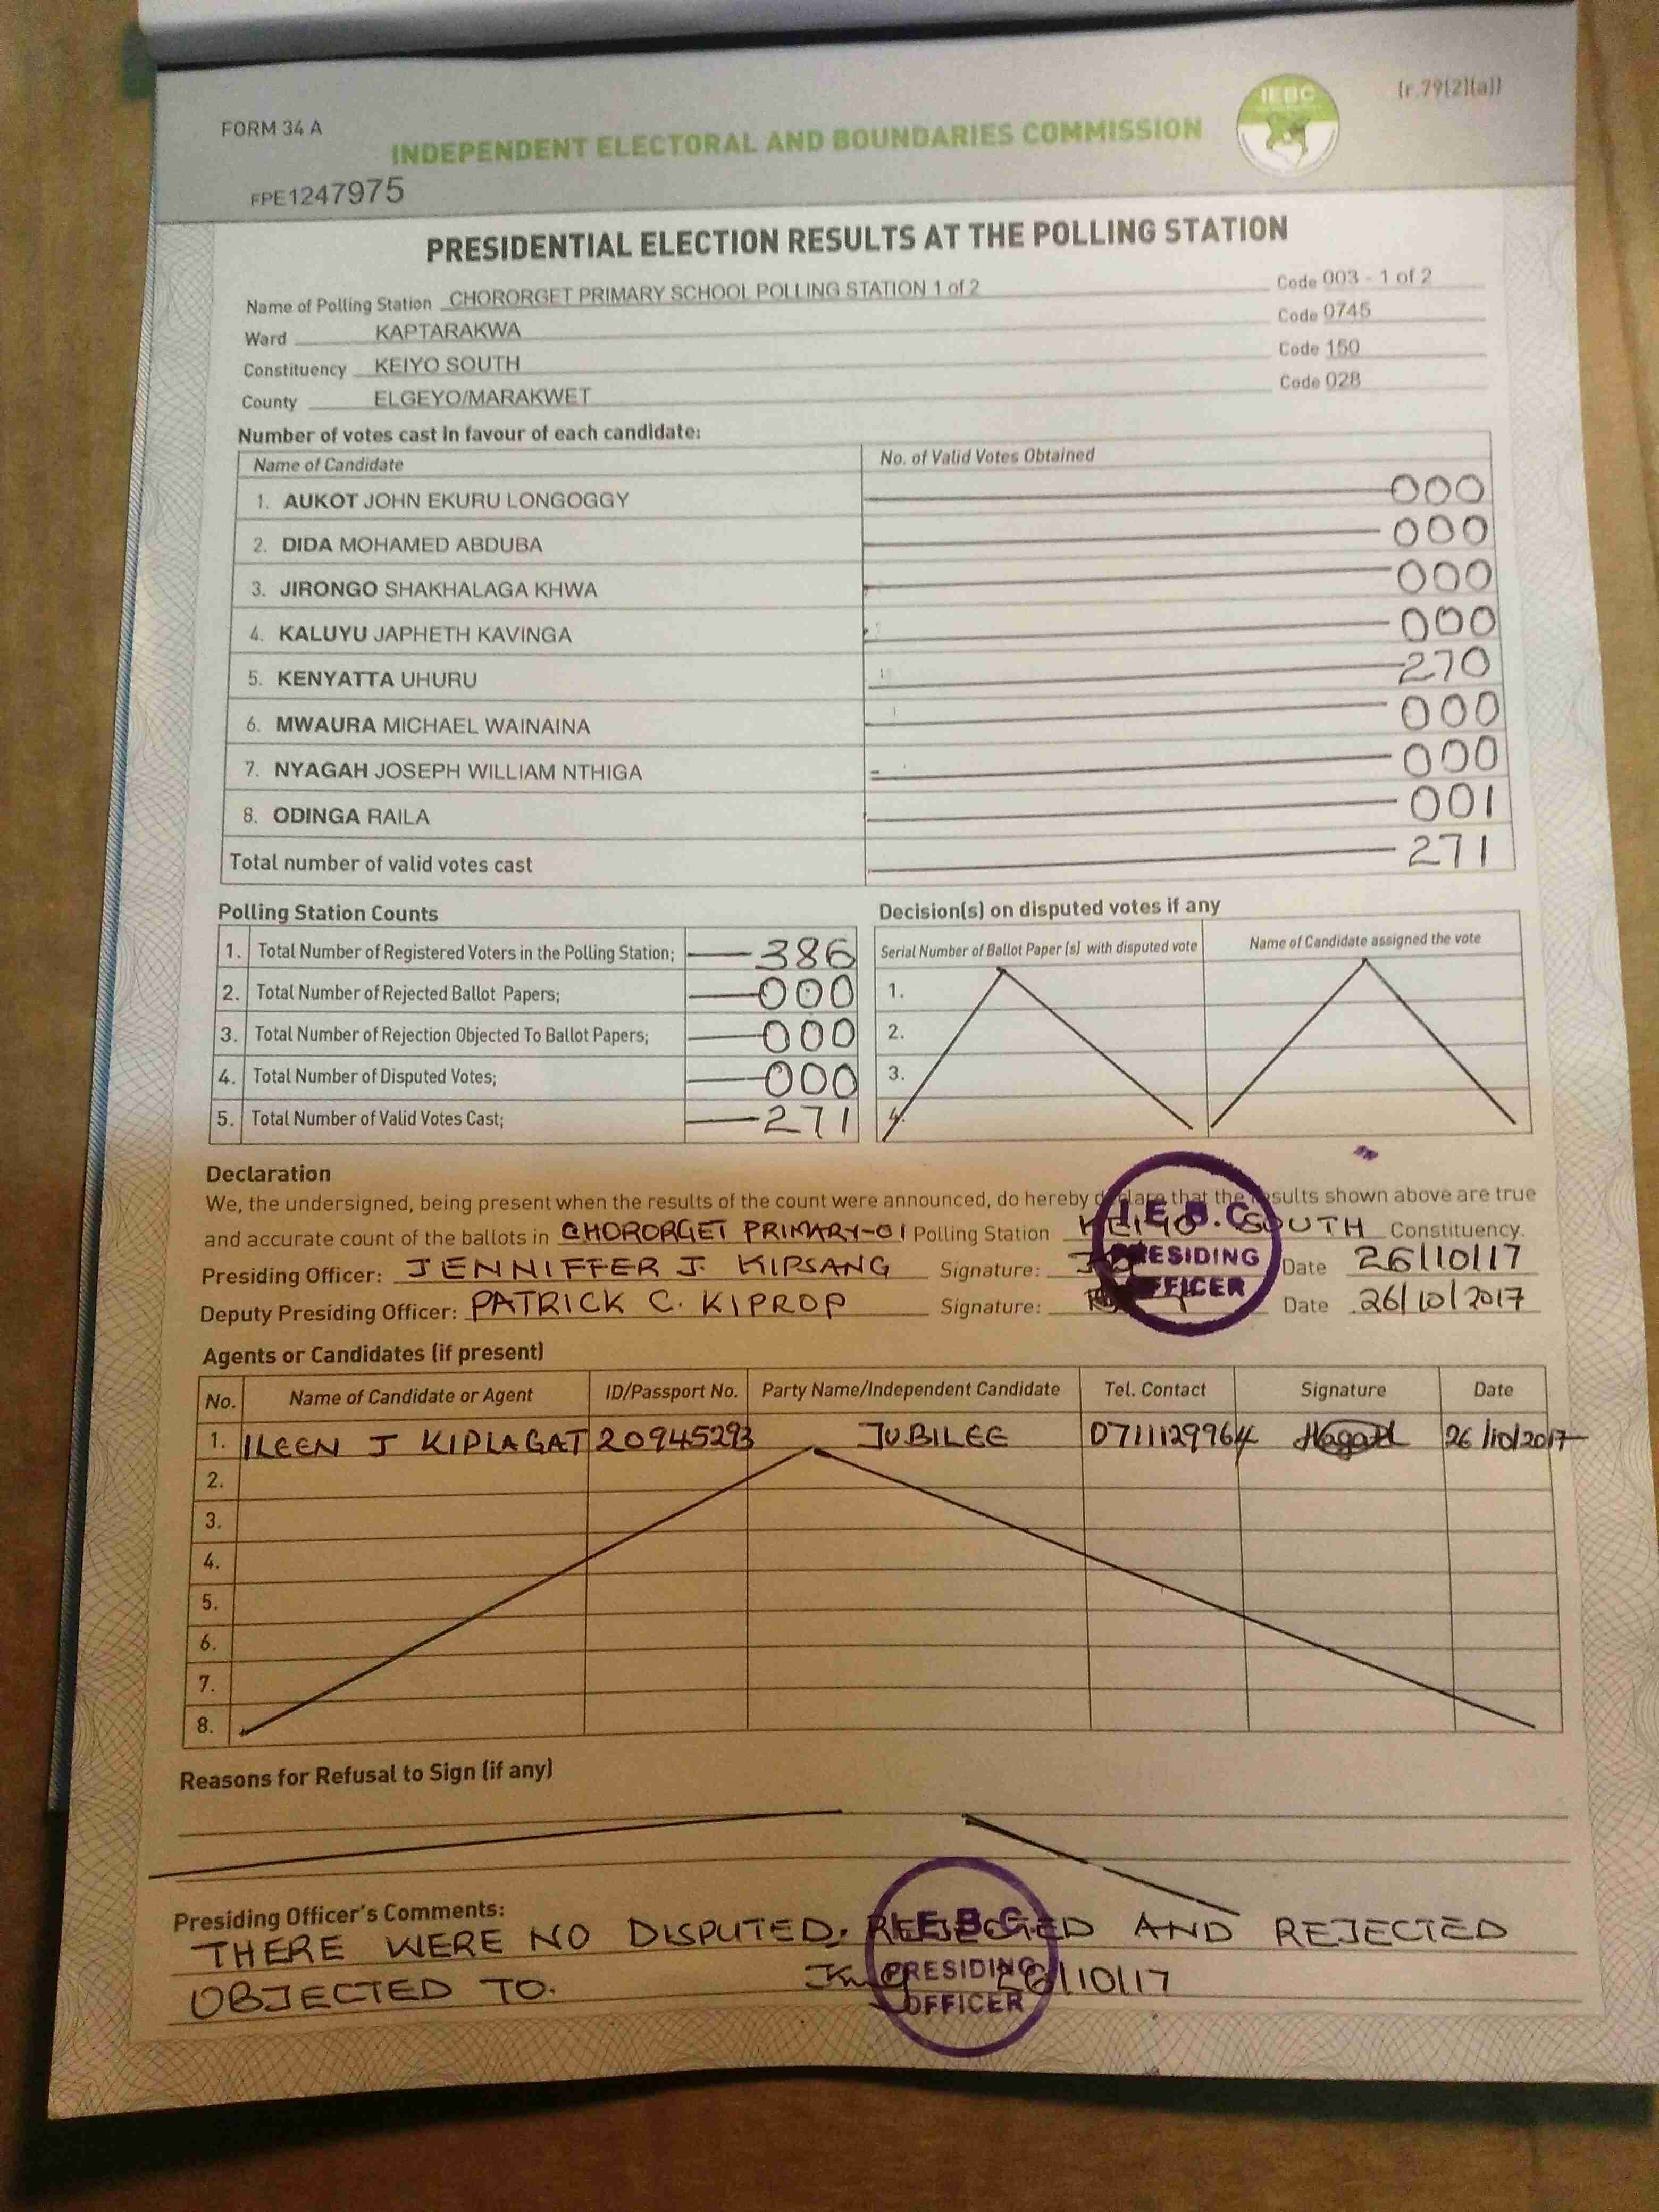 FORM 34 A
[r.79(2)(a)]
IEBC
INDEPENDENT ELECTORAL AND BOUNDARIES COMMISSION
FPE1247975
PRESIDENTIAL ELECTION RESULTS AT THE POLLING STATION
Name of Polling Station CHORORGET PRIMARY SCHOOL POLLING STATION 1 of 2 Code 003 - 1 of 2
Ward KAPTARAKWA Code 0745
Constituency KEIYO SOUTH Code 150
County ELGEYO/MARAKWET Code 028
Number of votes cast in favour of each candidate:
Name of Candidate No. of Valid Votes Obtained
1. AUKOT JOHN EKURU LONGOGGY 000
2. DIDA MOHAMED ABDUBA 000
3. JIRONGO SHAKHALAGA KHWA 000
4. KALUYU JAPHETH KAVINGA 000
5. KENYATTA UHURU 270
6. MWAURA MICHAEL WAINAINA 000
7. NYAGAH JOSEPH WILLIAM NTHIGA 000
8. ODINGA RAILA 001
Total number of valid votes cast 271
Polling Station Counts
1. Total Number of Registered Voters in the Polling Station; 386
2. Total Number of Rejected Ballot Papers; 000
3. Total Number of Rejection Objected To Ballot Papers; 000
4. Total Number of Disputed Votes; 000
5. Total Number of Valid Votes Cast; 271
Decision(s) on disputed votes if any
Serial Number of Ballot Paper (s) with disputed vote Name of Candidate assigned the vote
1.
2.
3.
4.
Declaration
We, the undersigned, being present when the results of the count were announced, do hereby declare that the results shown above are true
and accurate count of the ballots in CHORORGET PRIMARY-01 Polling Station KEIYO SOUTH Constituency.
Presiding Officer: JENNIFFER J. KIPSANG Signature: Date 26/10/17
Deputy Presiding Officer: PATRICK C. KIPROP Signature: Date 26/10/2017
I.E.B.C
PRESIDING
OFFICER
Agents or Candidates (if present)
No. Name of Candidate or Agent ID/Passport No. Party Name/Independent Candidate Tel. Contact Signature Date
1. ILEEN J KIPLAGAT 20945293 JUBILEE 0711129964 26/10/2017
2.
3.
4.
5.
6.
7.
8.
Reasons for Refusal to Sign (if any)
Presiding Officer's Comments:
THERE WERE NO DISPUTED, REJECTED AND REJECTED
OBJECTED TO. 26/10/17
I.E.B.C
PRESIDING
OFFICER